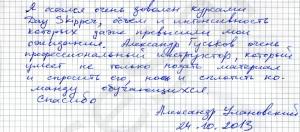 Я остался очень доволен курсами
Day Skipper, объем и интенсивность
которых даже превысили мои
ожидания. Александр Гуськов очень
профессиональный инструктор, который
умеет не только подать материал
и спросить его, но и сплотить ко-
манду обучающихся.
Спасибо
Александр Улановский
24.10.2013